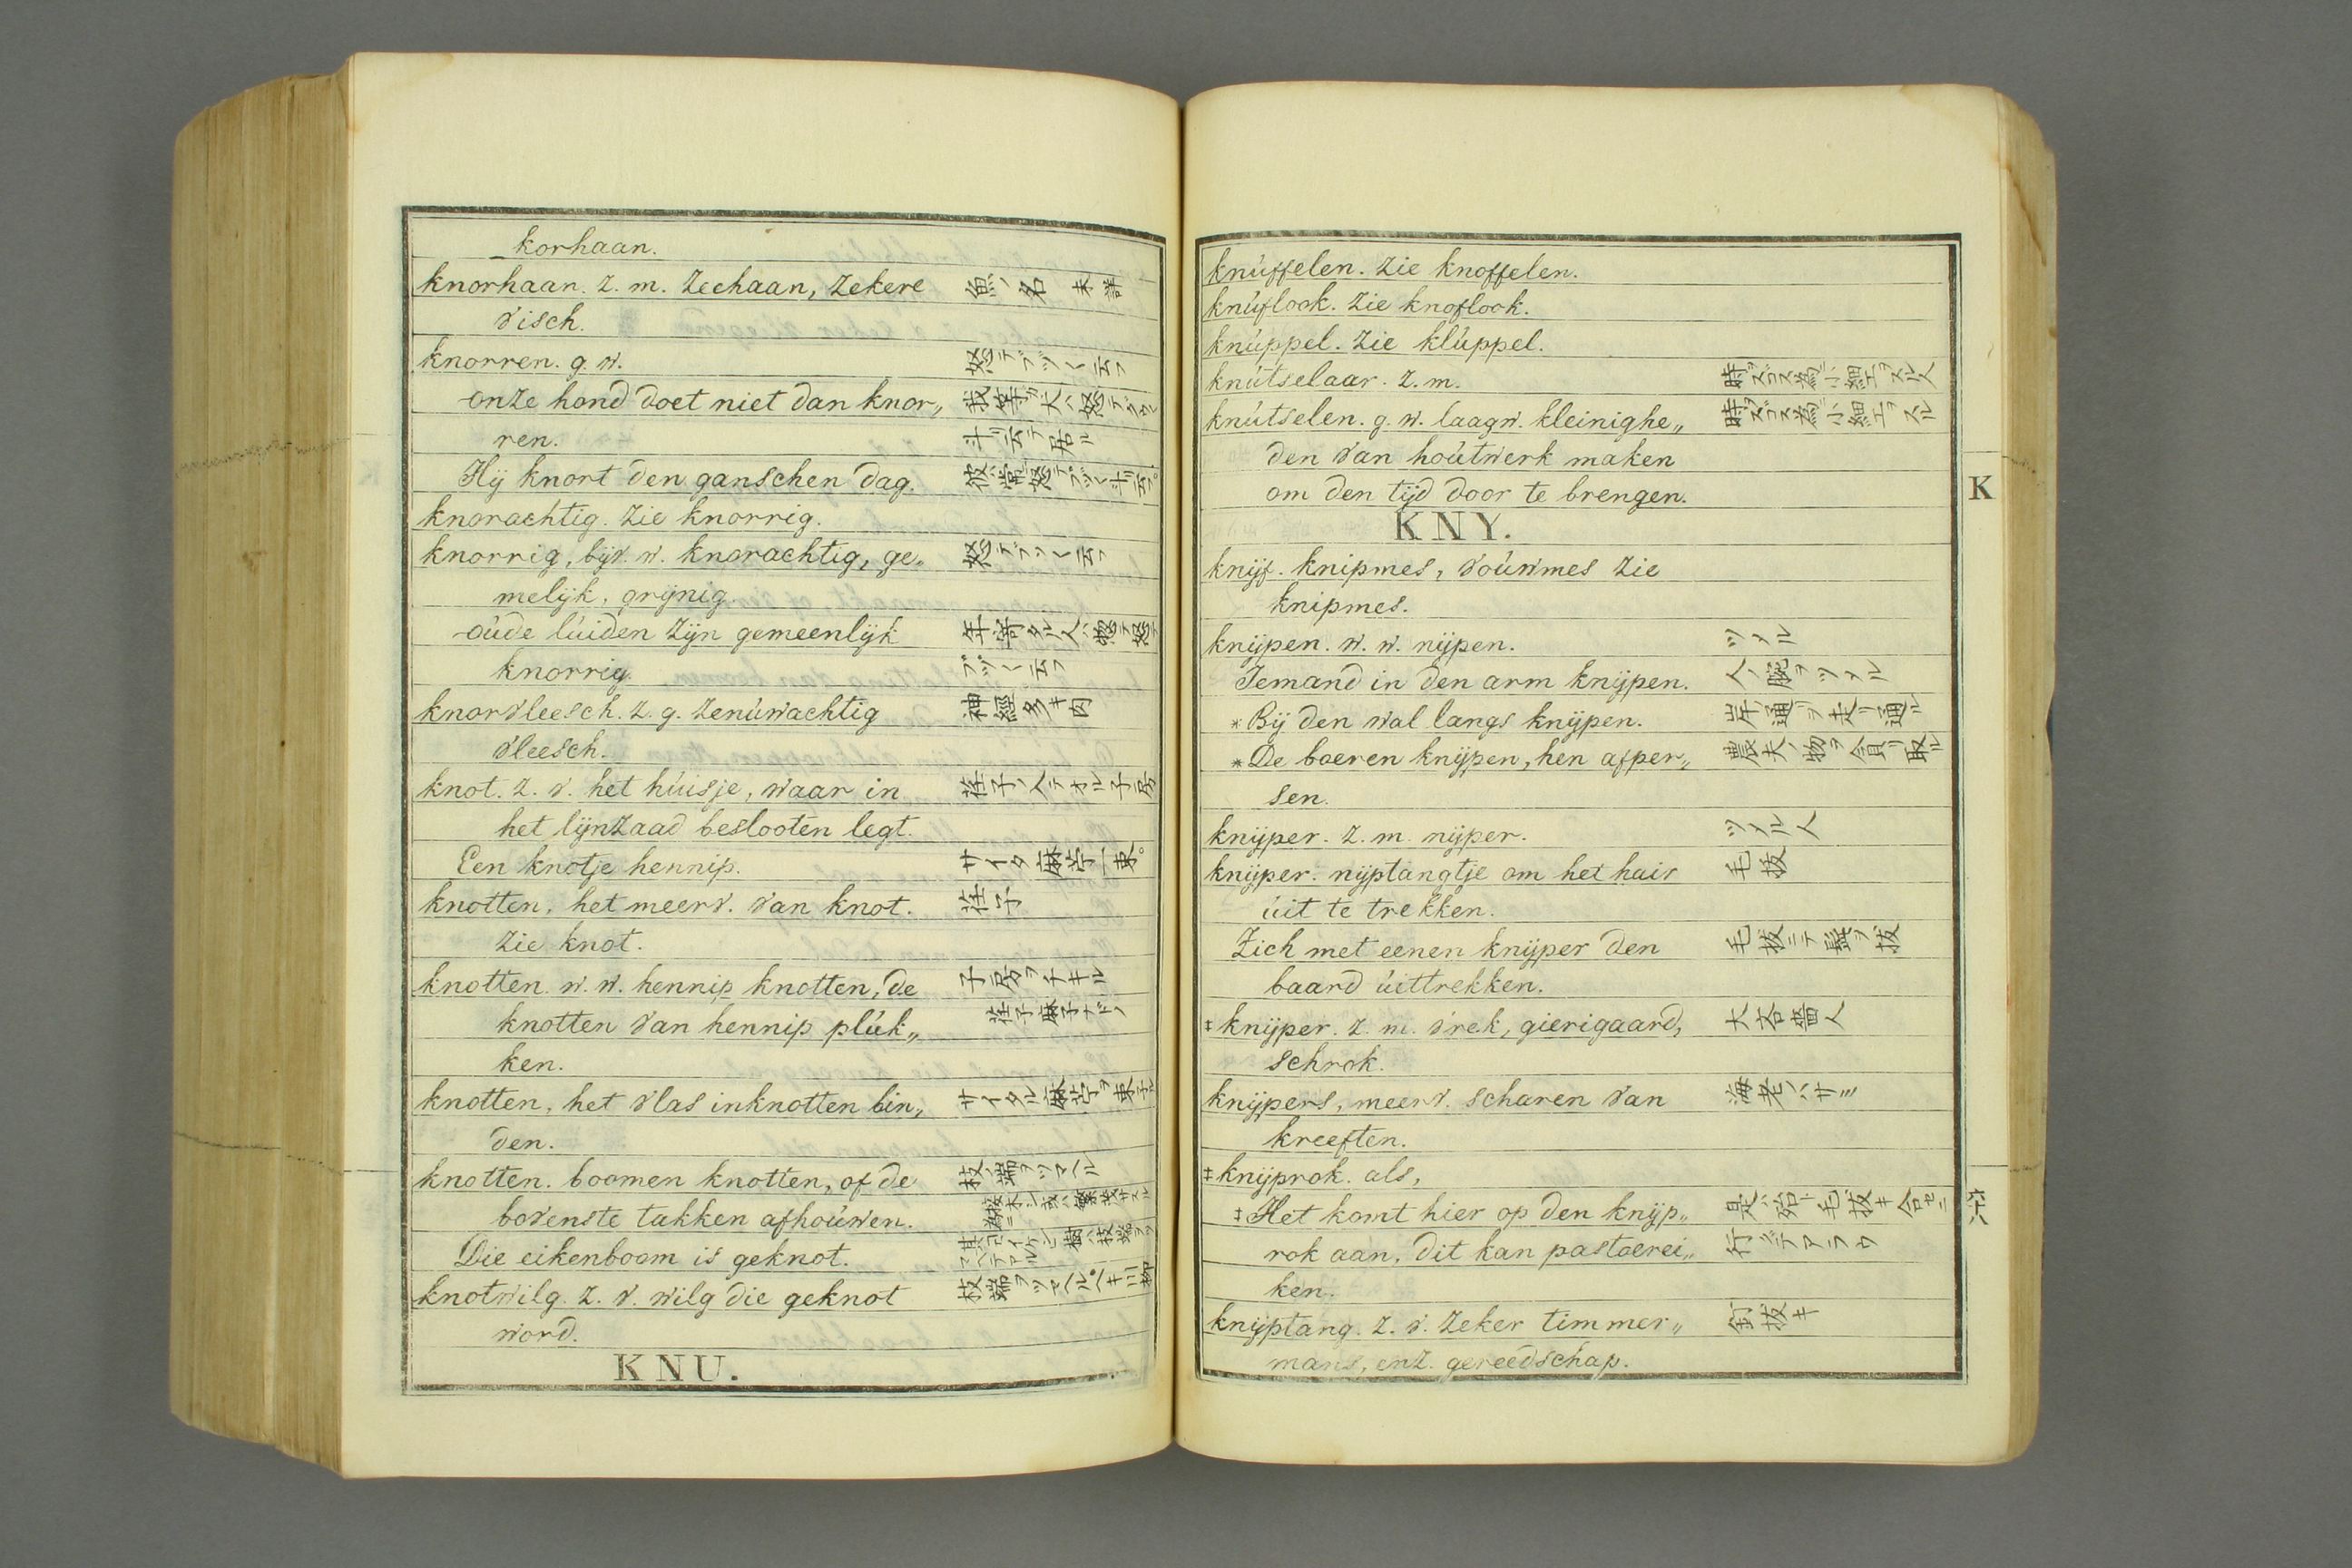 korhaan.
knorhaan. z. m. zeehaan, zekere 魚ノ名 未詳
visch.
knorren. g. w. 怒テブツ〱云フ
onze hond doet niet dan knor„ 我等ガ犬ハ怒テ
ren. 斗リ云テ居ル
Hij knort den ganschen dag. 彼ハ常ニ怒テブツ〱斗リ云フ。
knorachtig. zie knorrig.
knorrig, bijv. w. knorachtig, ge„ 怒テブツ〱云フ
melijk, grijnig.
oúde lúiden zijn gemeenlijk 年寄タル人ハ惣テ怒テ
knorrig. ブツ〱云フ
knorvleesch. z. g. zenúwachtig 神経多キ肉
vleesch.
knot. z. v. het húisje, waar in 荏子ノ入テオル子房
het lijnzaad beslooten legt.
Een knotje hennip. サイタ麻苧一束。
knotten, het meerv. van knot. 荏子
zie knot.
knotten. w. w. hennip knotten, de 子房ヲチキル
knotten van hennip plúk„ 荏子麻子ナドノ
ken.
knotten, het vlas inknotten bin„ サイタル麻苧ヲ束子ル
den.
knotten. boomen knotten, of de 枝ノ端ヲツマヘル
bovenste takken afhoúwen.
Die eikenboom is geknot.
knotwilg. z. v. wilg die geknot 枝ノ端ヲツマヘルベキ川柳
word.
KNU.
knúffelen. zie knoffelen.
knúflook. zie knoflook.
knúppel. zie klúppel.
knútselaar. z. m. 時ヲスゴス為ニ小細工ヲスル人
knútselen. g. w. laagw. kleinighe„ 時ヲスゴス為ニ小細工ヲスル
den van hoútwerk maken
om den tijd door te brengen.
K
KNY.
knijf. knipmes, voúwmes zie
knipmes.
knijpen. w. w. nijpen. ツメル
Iemand in den arm knijpen. 人ノ腕ヲツメル
* Bij den wal langs knijpen. 岸ノ通リヲ走リ通ル
* De boeren knijpen, hen afper„ 農夫ノ物ヲ貪リ取ル
sen.
knijper. z. m. nijper. ツメル人
knijper. nijptangtje om het hair 毛抜
úit te trekken.
Zich met eenen knijper den 毛抜ニテ髭ヲ抜
baard úittrekken.
‡ knijper. z. m. vrek, gierigaard, 大吝嗇人
schrok.
knijpers, meerv. scharen van 海老ノハサミ
kreeften.
‡ knijprok. als,
‡ Het komt hier op den knijp„ 是ハ殆ト毛抜キ合セニ
rok aan, dit kan pastoerei„ 行テアラウ
ken.
knijptang. z. v. zeker timmer„ 釘抜キ
mans, enz. gereedschap.
六十八